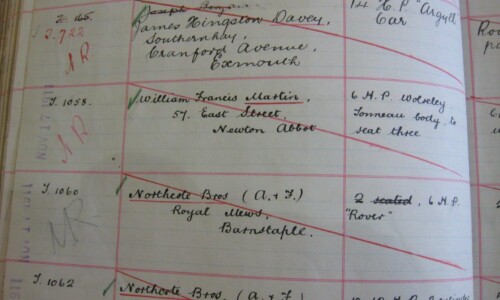 T. 165.
T. 722
NR
James Kingston Davey,
Southernhay,
Cranford Avenue,
Exmouth
14 H.P. "Argyll
Car
NOV 17 1911
T. 1058.
NR
William Francis Martin,
57. East Street,
Newton Abbot
6 H.P. Wolseley
Tonneau body, to
seat three
T. 1060
NR
Northcote Bros (A. & F.)
Royal Mews,
Barnstaple.
2 seated, 6 H.P.
"Rover"
T. 1062
Northcote Bros. (A. & F.)